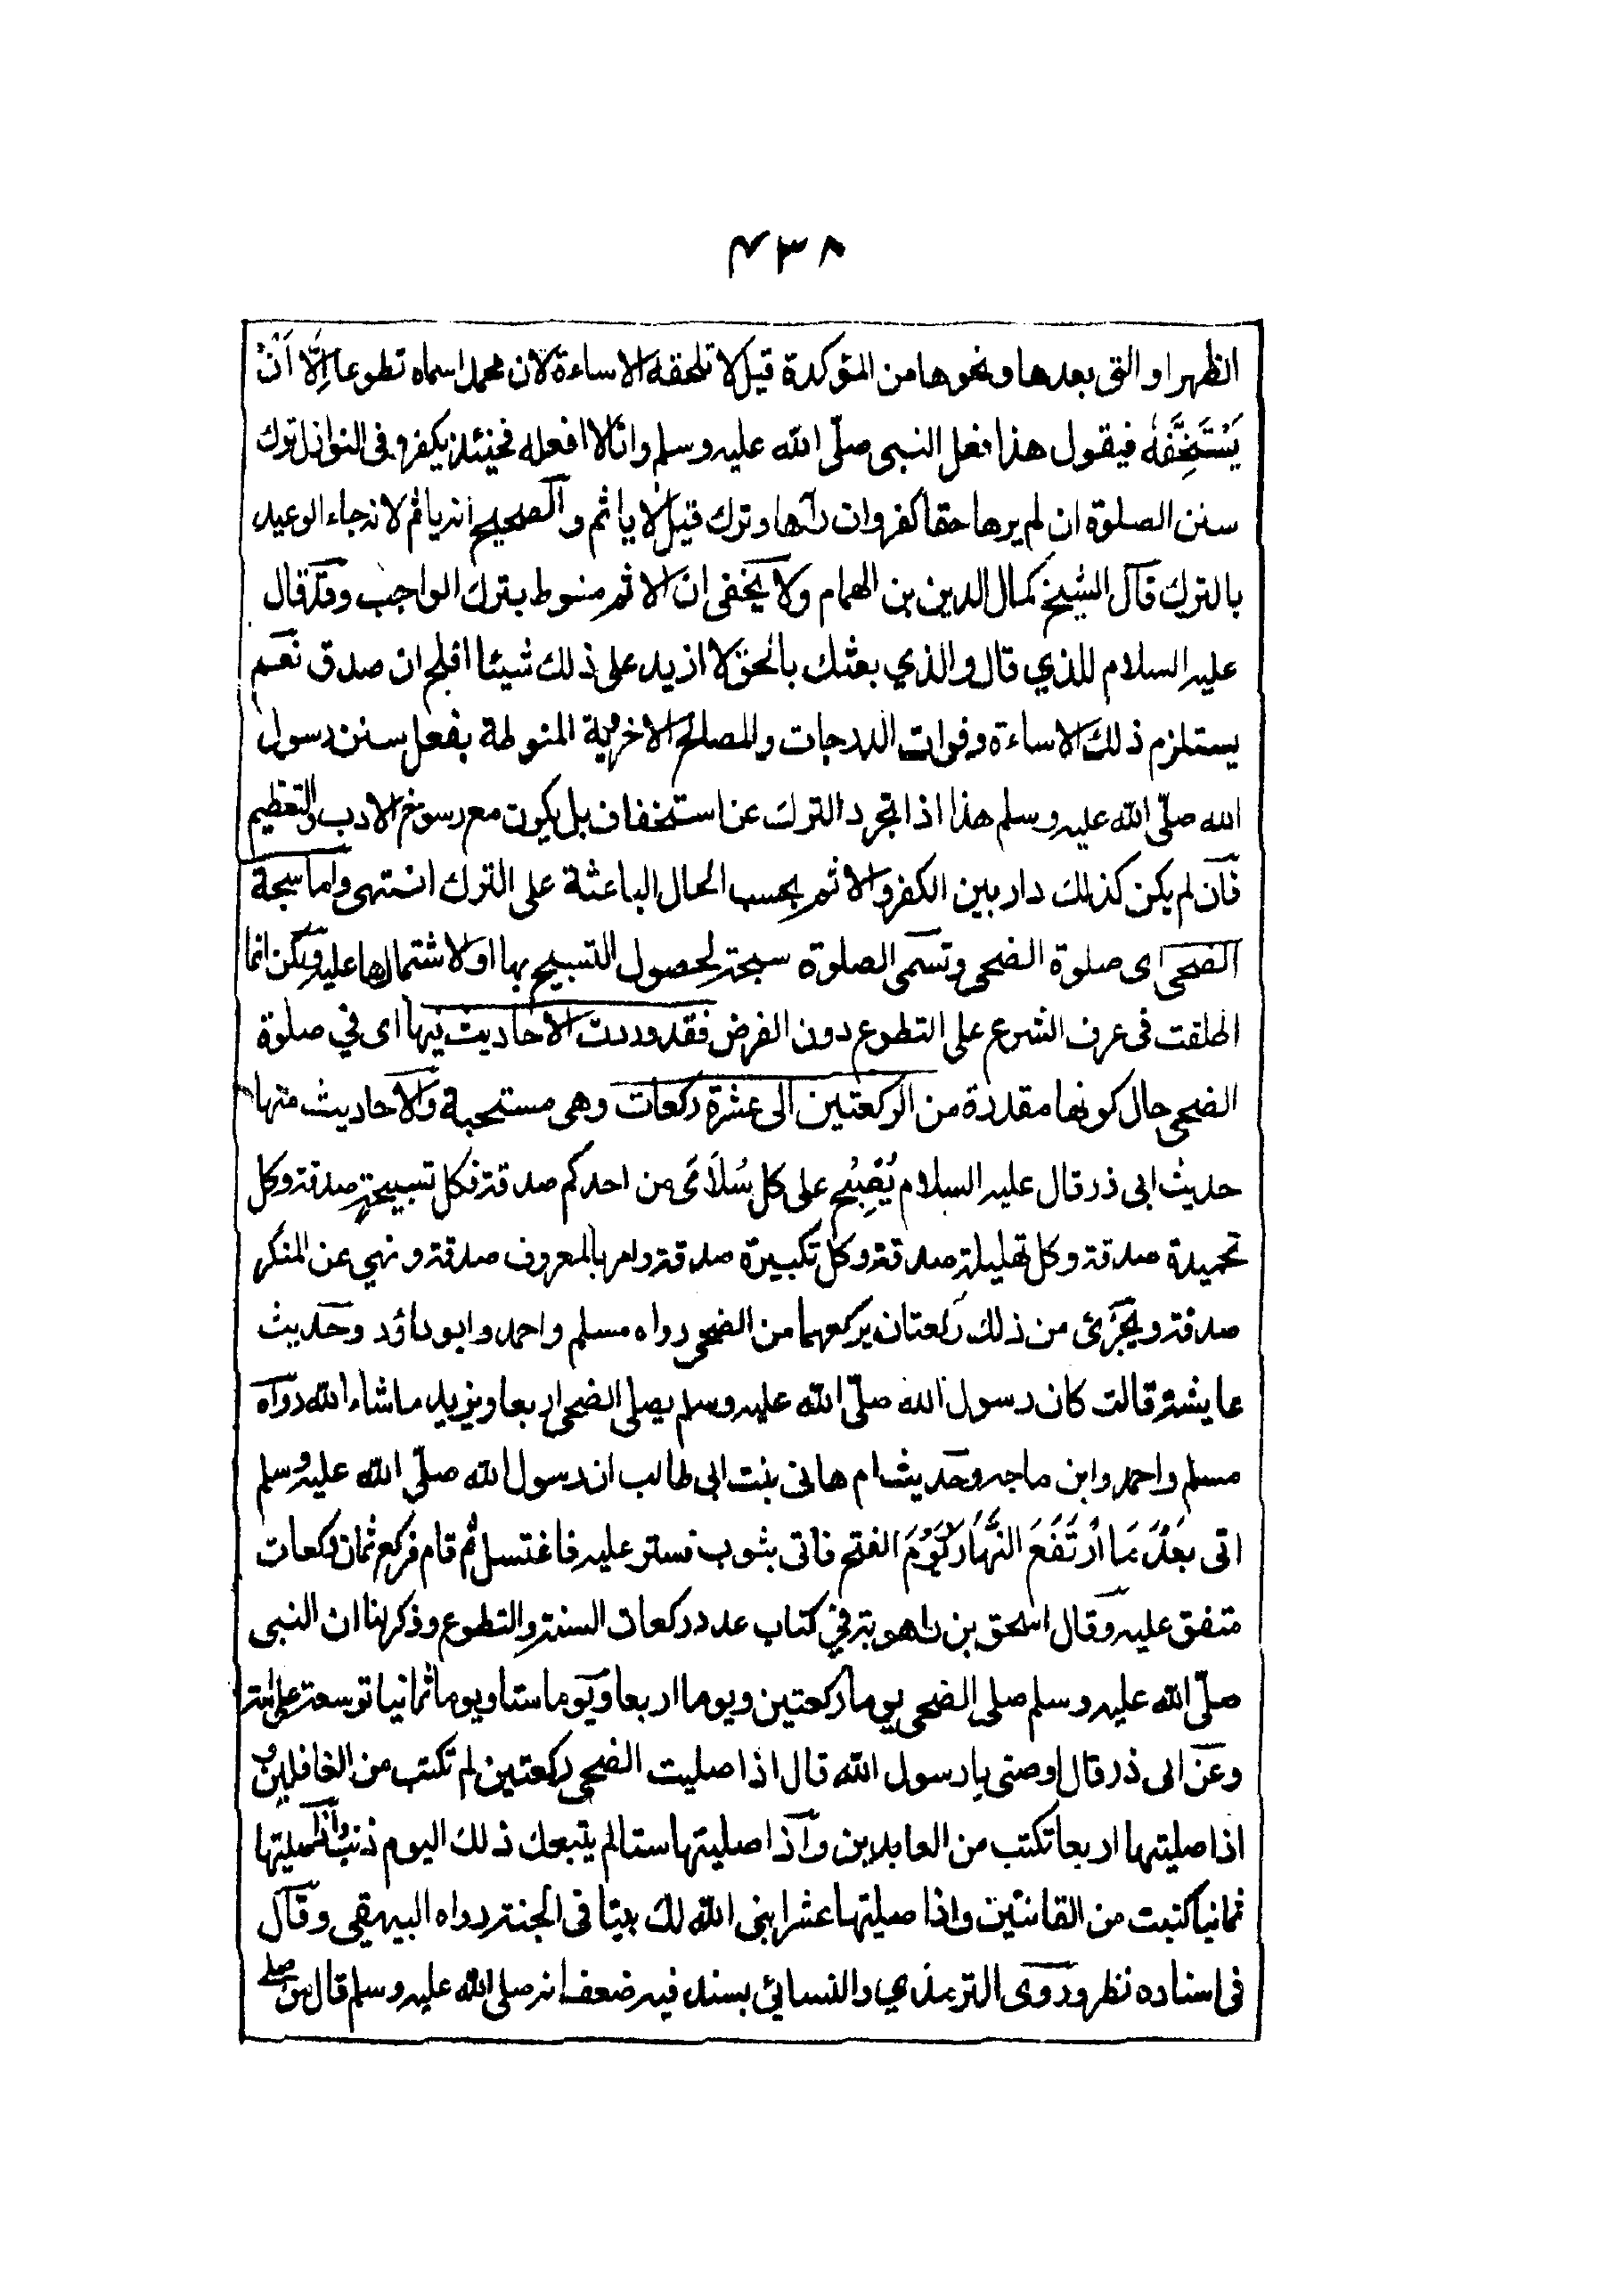 ٤٣٨
الظهر او التى بعدها ونحوها من المؤكدة قيل لا تلحقه الاساءة لان محمدا سماه تطوعا اِلَّا اَنْ
يَسْتَخِفَّهٗ فيقول هذا فعل النبى صلّى الله عليه وسلم وانا لا افعله فحينئذ يكفر وفى النوازل ترك
سنن الصلوة ان لم يرها حقا كفر وان رآها وترك قيل لا ياثم والصحيح انه ياثم لانه جاء الوعيد
بالترك قال الشيخ كمال الدين بن الهمام ولا يخفى ان الاثم منوط بترك الواجب وقد قال
عليه السلام للذي قال والذي بعثك بالحق لا ازيد على ذلك شيئا افلح ان صدق نعم
يستلزم ذلك الاساءة وفوات الدرجات والمصالح الاخروية المنوطة بفعل سنن رسول
الله صلّى الله عليه وسلم هذا اذا تجرد الترك عن استخفاف بل يكون مع رسوخ الادب والتعظيم
فان لم يكن كذلك دار بين الكفر والاثم بحسب الحال الباعثة على الترك انتهى واما سبحة
الضحى اى صلوة الضحى وتسمى الصلوة سبحة لحصول التسبيح بها او لاشتمالها عليه ولكن انما
اطلقت فى عرف الشرع على التطوع دون الفرض فقد وردت الاحاديث فيها اى في صلوة
الضحى حال كونها مقدرة من الركعتين الى عشرة ركعات وهى مستحبة والاحاديث منها
حديث ابى ذر قال عليه السلام يُصْبِحُ على كل سُلَامٰى من احدكم صدقة فكل تسبيحةٍ صدقة وكل
تحميدة صدقة وكل تهليلة صدقة وكل تكبيرة صدقة وامر بالمعروف صدقة ونهي عن المنكر
صدقة ويجزئ من ذلك ركعتان يركعهما من الضحى رواه مسلم واحمد وابو داؤد وحديث
عايشة قالت كان رسول الله صلّى الله عليه وسلم يصلى الضحى اربعا ويزيد ما شاء الله رواه
مسلم واحمد وابن ماجه وحديث ام هانى بنت ابى طالب ان رسول الله صلّى الله عليه وسلم
اتى بَعْدَ مَا ارْتَفَعَ النَّهَارُ يَوْمَ الفتح فاتى بثوب فستر عليه فاغتسل ثم قام فركع ثمان ركعات
متفق عليه وقال اسحق بن راهويه في كتاب عدد ركعات السنة والتطوع وذكر لنا ان النبى
صلّى الله عليه وسلم صلى الضحى يوما ركعتين ويوما اربعا ويوما ستا ويوما ثمانيا توسعة على امته
وعن ابى ذر قال اوصنى يا رسول الله قال اذا صليت الضحى ركعتين لم تكتب من الغافلين و
اذا صليتها اربعا تكتب من العابدين واذا صليتها ستا لم يتبعك ذلك اليوم ذنب واذا صليتها
ثمانيا كتبت من القانتين واذا صليتها عشرا بنى الله لك بيتا فى الجنة رواه البيهقى وقال
فى اسناده نظر وروى الترمذي والنسائى بسند فيه ضعف انه صلى الله عليه وسلم قال من صلى